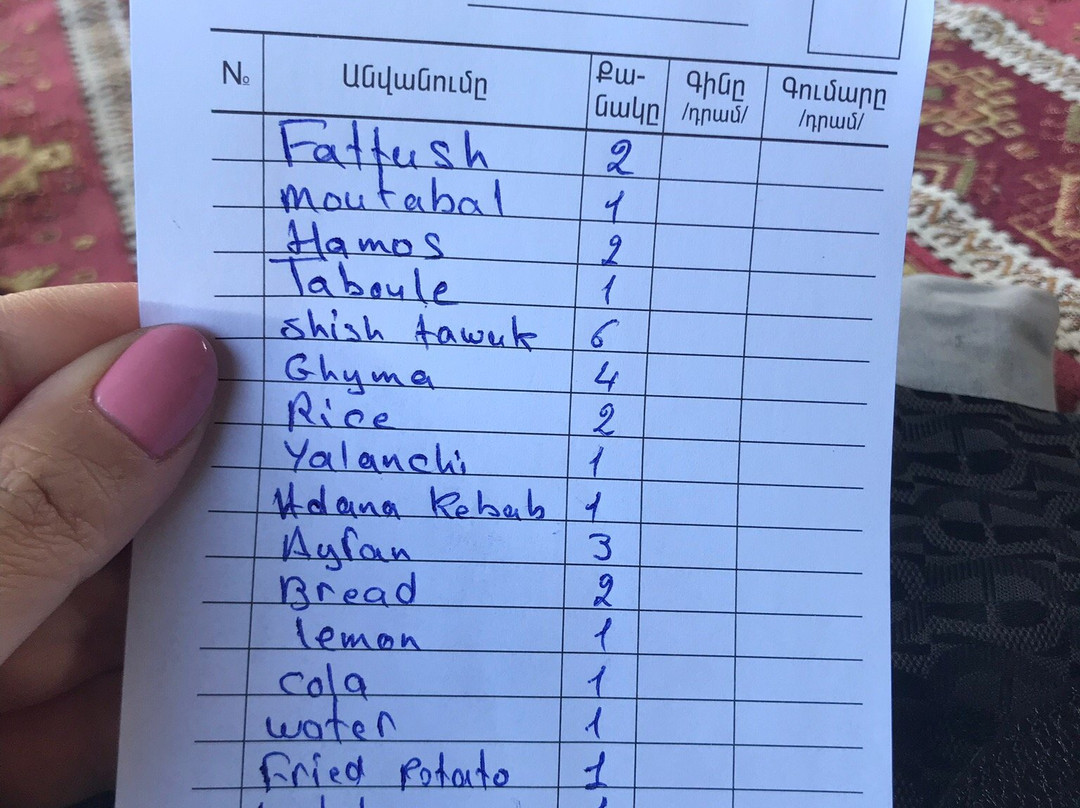 № Անվանումը Քա-նակը Գինը /դրամ/ Գումարը /դրամ/
Fattush 2
Moutabal 1
Hamos 2
Taboule 1
Shish tawuk 6
Ghyma 4
Rice 2
Yalanchi 1
Adana Kebab 1
Ayran 3
Bread 2
lemon 1
cola 1
water 1
Fried Potato 1